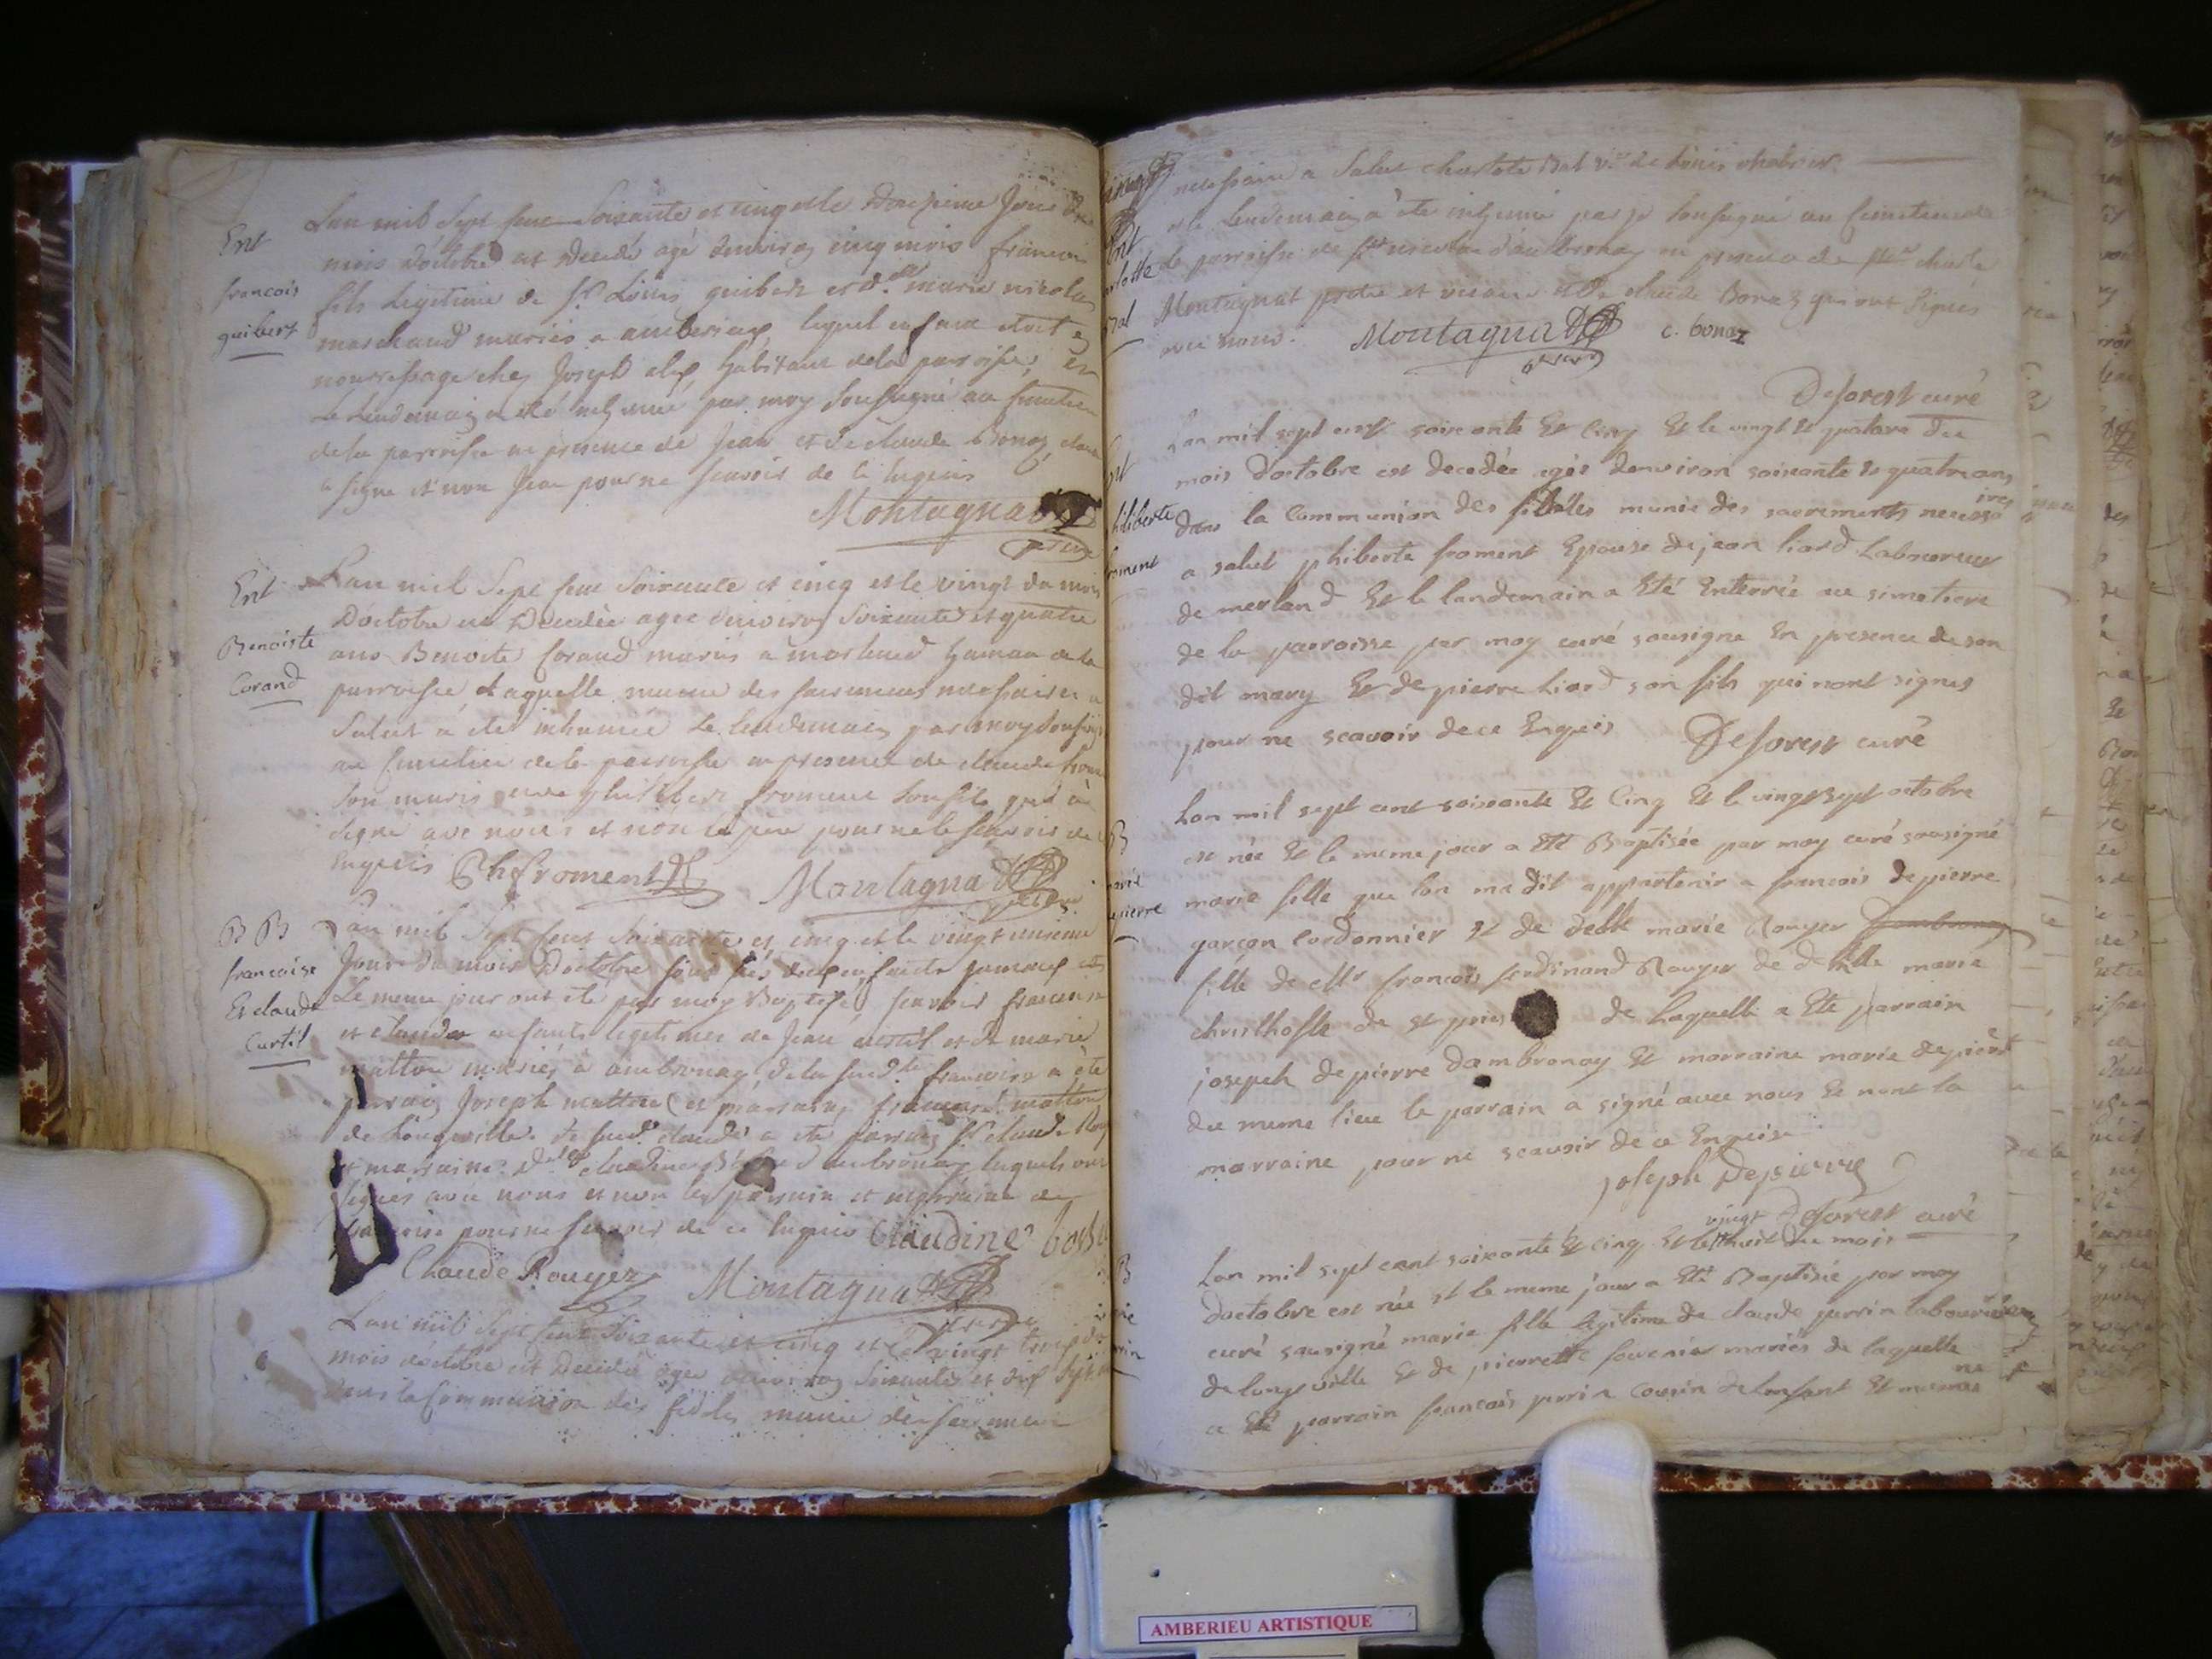 Ent
francois
guibert
L'an mil Sept Cent Soixante et cinq et le Douzieme Jour du
mois d'octobre est Decedé agé d'environ cinq mois francois
fils Legitime de Sr Louis guibert et d.lle marie nicolas
marchand mariés a amberieux, lequel enfant etoit en
nourrissage chez Joseph habitant dela parroisse, et
Le Lendemain a eté inhumé par moy Soussigné au Cimetiere
dela parroisse en presence de Jean et de claude Bonaz, claude
a signé et non Jean pour ne scavoir de ce Enquis
Montagnat
vicaire
Ent
Benoiste
Corand
L'an mil Sept Cent Soixante et cinq et le vingt du mois
D'octobre est Decedée agée d'environ Soixante et quatre
ans Benoite Corand mariés a merland hameau dela
parroisse, Laquelle munie des sacremens necessaires a
Salut a eté inhumée Le lendemain par moy soussigné
au Cimetiere dela parroisse en presence de claude froment
son maris et de philibert froment son fils qui a
signé avec nous et non le pere pour ne le scavoir de ce
Enquis Ph froment Montagnat
vicaire
B B
francoise
Et claude
Curtil
L'an mil Sept Cent Soixante et cinq et le vingt unieme
Jour du mois D'octobre sont nés deux enfants jumeaux et
Le meme jour ont eté par moy Baptisé scavoir francoise
et claude enfants legitimes de Jean curtil et de marie
matton mariés à ambronay, de la sud.te francoise a eté
parrain Joseph matton et marraine francoise matton
de Longeville. de sud.t claude a eté parrain Sr claude Rouyer
et marraine D.lle claudine d'ambronay lesquels ont
signés avec nous et non les parrain et marraine de
francoise pour ne scavoir de ce Enquis Claudine
Claude Rouyer Montagnat
vicaire
L'an mil Sept Cent Soixante et cinq et le vingt trois du
mois d'octobre est Decedée agée d'environ Soixante et dix Sept ans
dans la Communion des fideles munie des sacremens
Ent
Bal
necessaire a Salut charlote Bal v.ve de Louis chabrier
et le Lendemain a été inhumé par je soussigné au Cimetiere de
la parroisse de St nicolas d'ambronay en presence de Sieur charle
Montagnat pretre et vicaire et De claude Bonaz qui ont Signés
avec nous. Montagnat c. bonaz
vicaire
Deforest curé
Ent
philiberte
froment
Lan mil sept cent soixante Et Cinq Et le vingt et quatre du
mois doctobre est decedée agée denviron soixante et quatre ans
dans la Communion des fidelles munie des sacrements necessaires
a salut philiberte froment Epouse de jean liard Laboureur
de merland Et le landemain a Eté Enterrée au simetiere
de la parroisse par moy curé sousigné En presence de son
dit mary Et de pierre liard son fils qui nont signés
pour ne scavoir de ce Enquis Deforest curé
B
marie
depierre
Lan mil sept cent soixante Et Cinq Et le vingt sept octobre
est née Et le meme jour a Eté Baptisée par moy curé sousigné
marie fille que lon ma dit appartenir a francois depierre
garçon Cordonnier Et de delle marie Rouyer dambronay
fille de Mr francois ferdinand Rouyer de delle marie
christhofle de st priest de Laquelle a Eté parrain
joseph depierre dambronay Et marraine marie depierre
du meme lieu le parrain a signé avec nous Et non la
marraine pour ne scavoir de ce Enquise
joseph Depierre
Deforest curé
B
Lan mil sept cent soixante Et Cinq Et le vingt huit du mois
doctobre est née Et le meme jour a Eté Baptisée par moy
curé sousigné marie fille legitime de claude perrin laboureur
de longeville Et de pierrette mariés de laquelle
a Eté parrain francois perrin Cousin de lenfant Et
AMBERIEU ARTISTIQUE